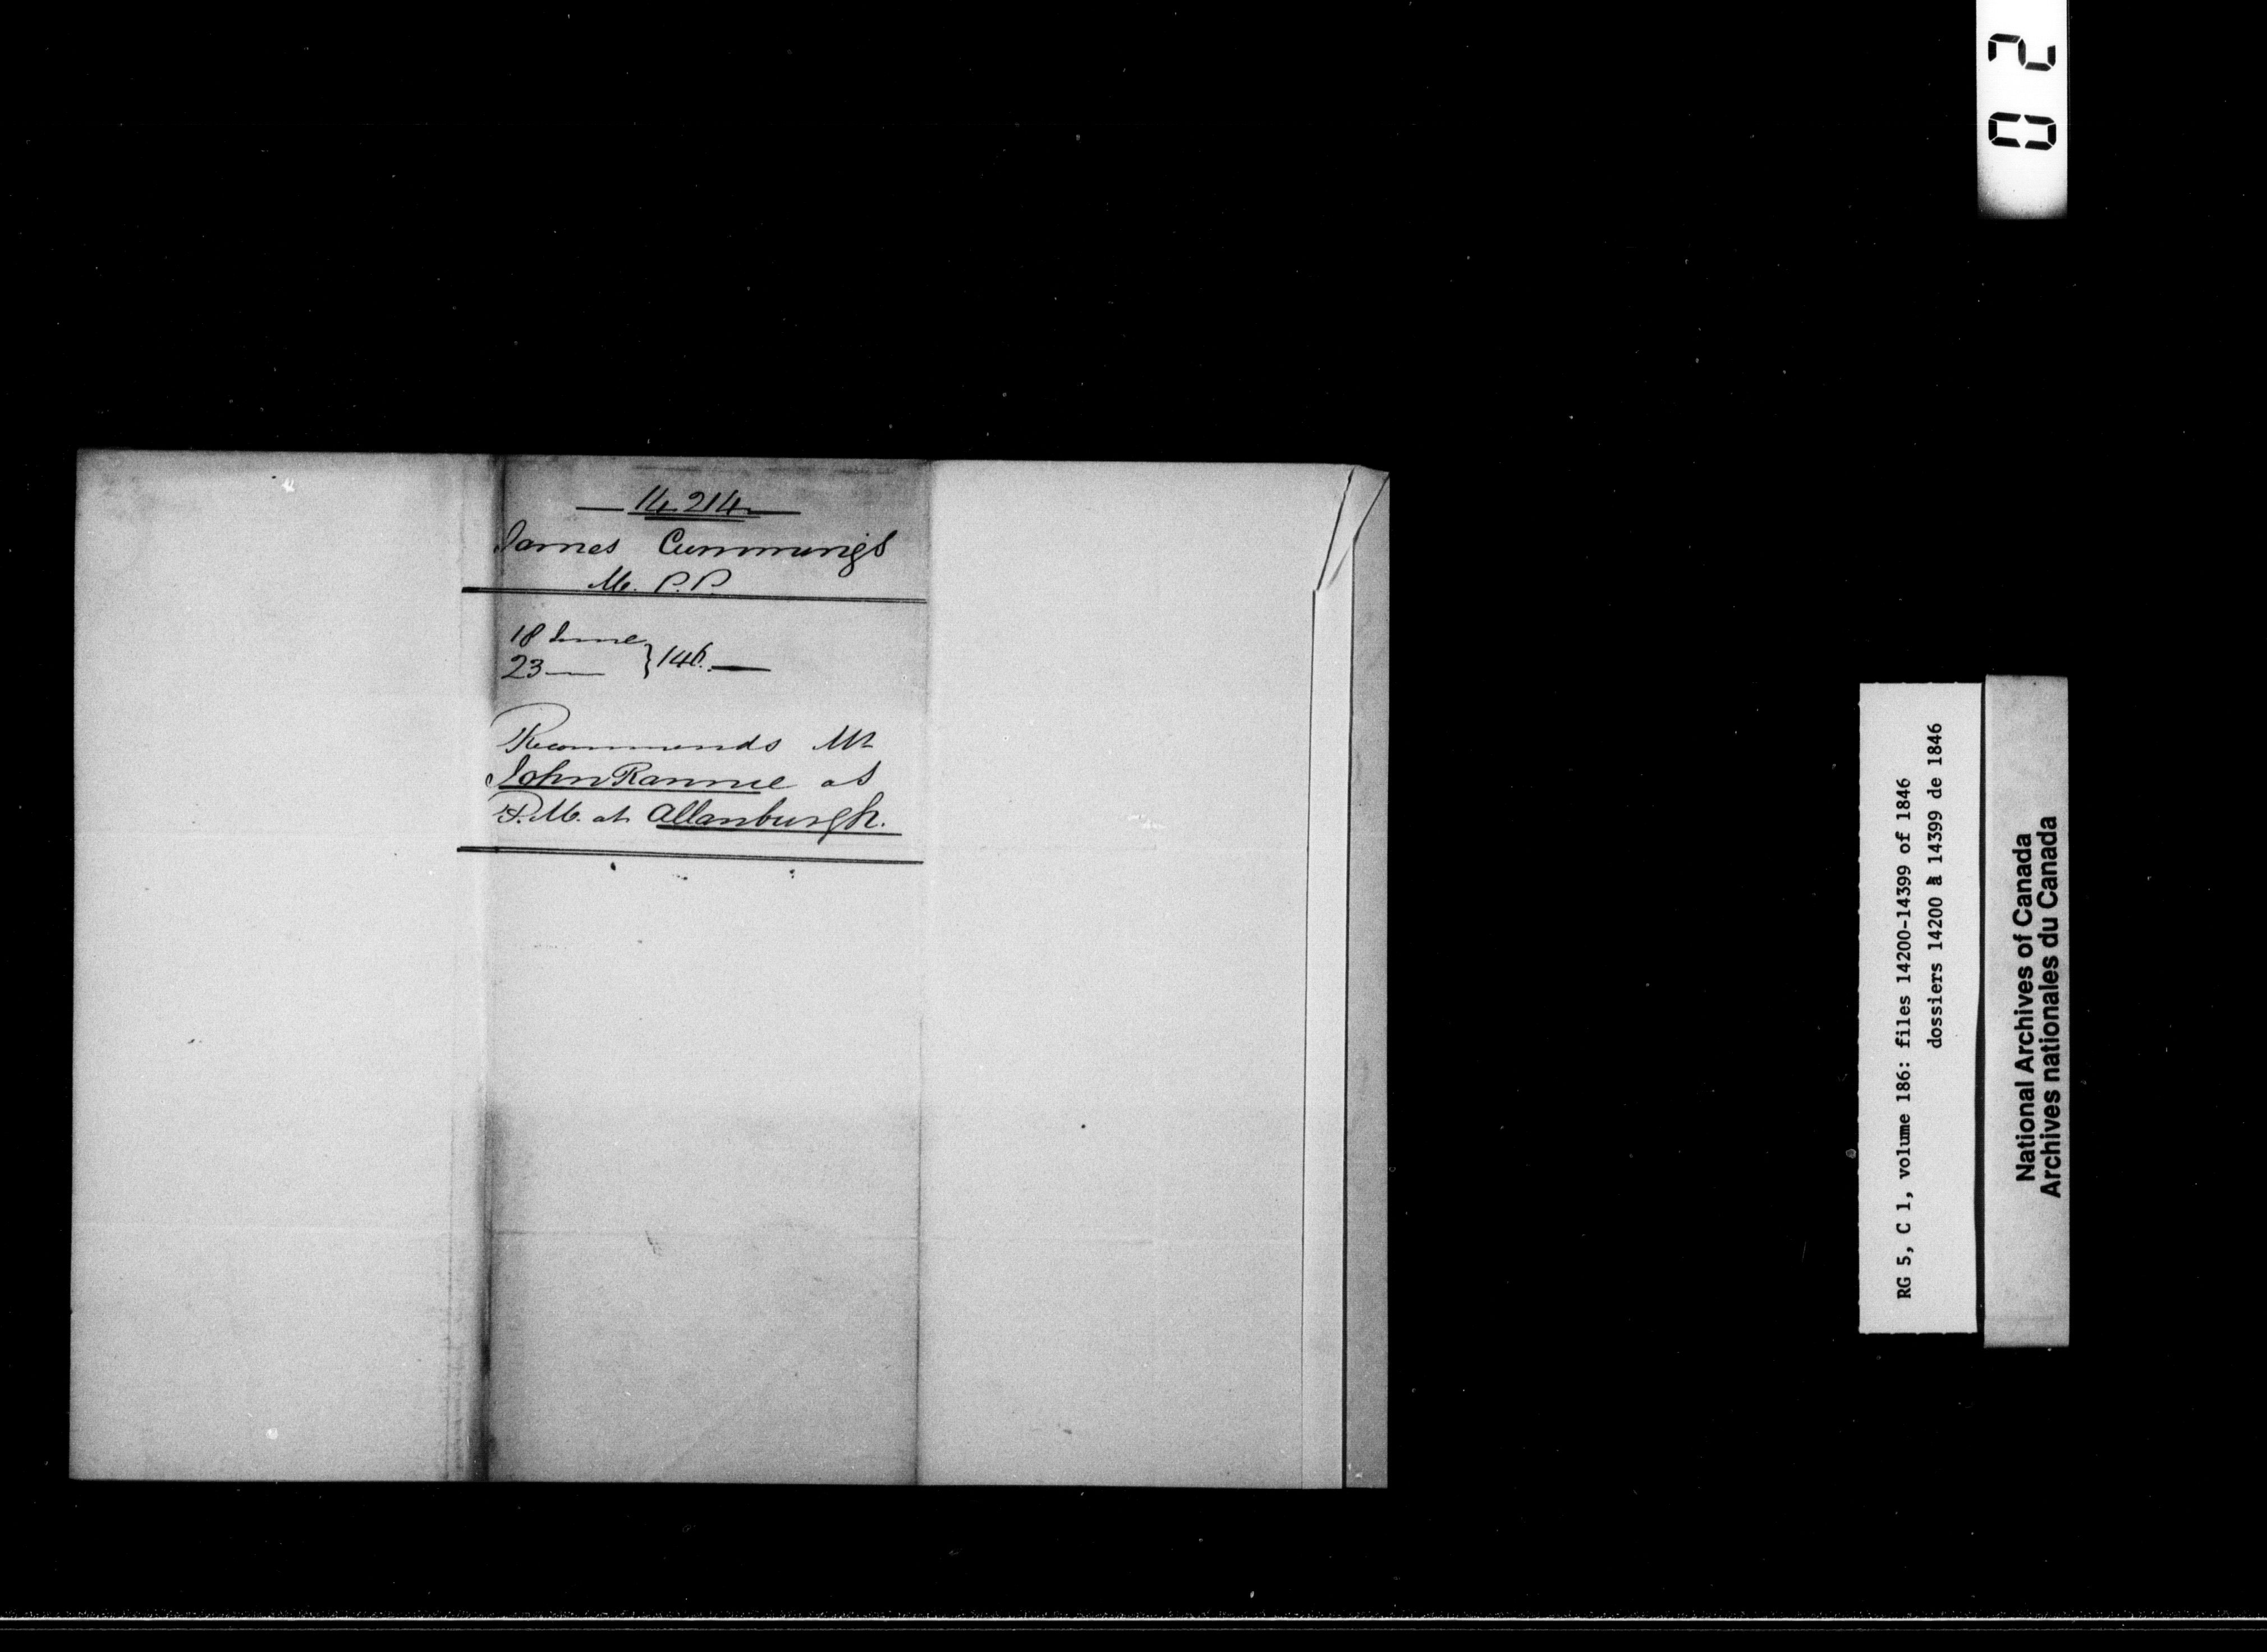 14.214
James Cummings
M. P. P.
18 June
23 — } 146. —
Recommends Mr
John Rannie as
P. M. at Allanburgh.
02
RG 5, C 1, volume 186: files 14200-14399 of 1846
dossiers 14200 à 14399 de 1846
National Archives of Canada
Archives nationales du Canada